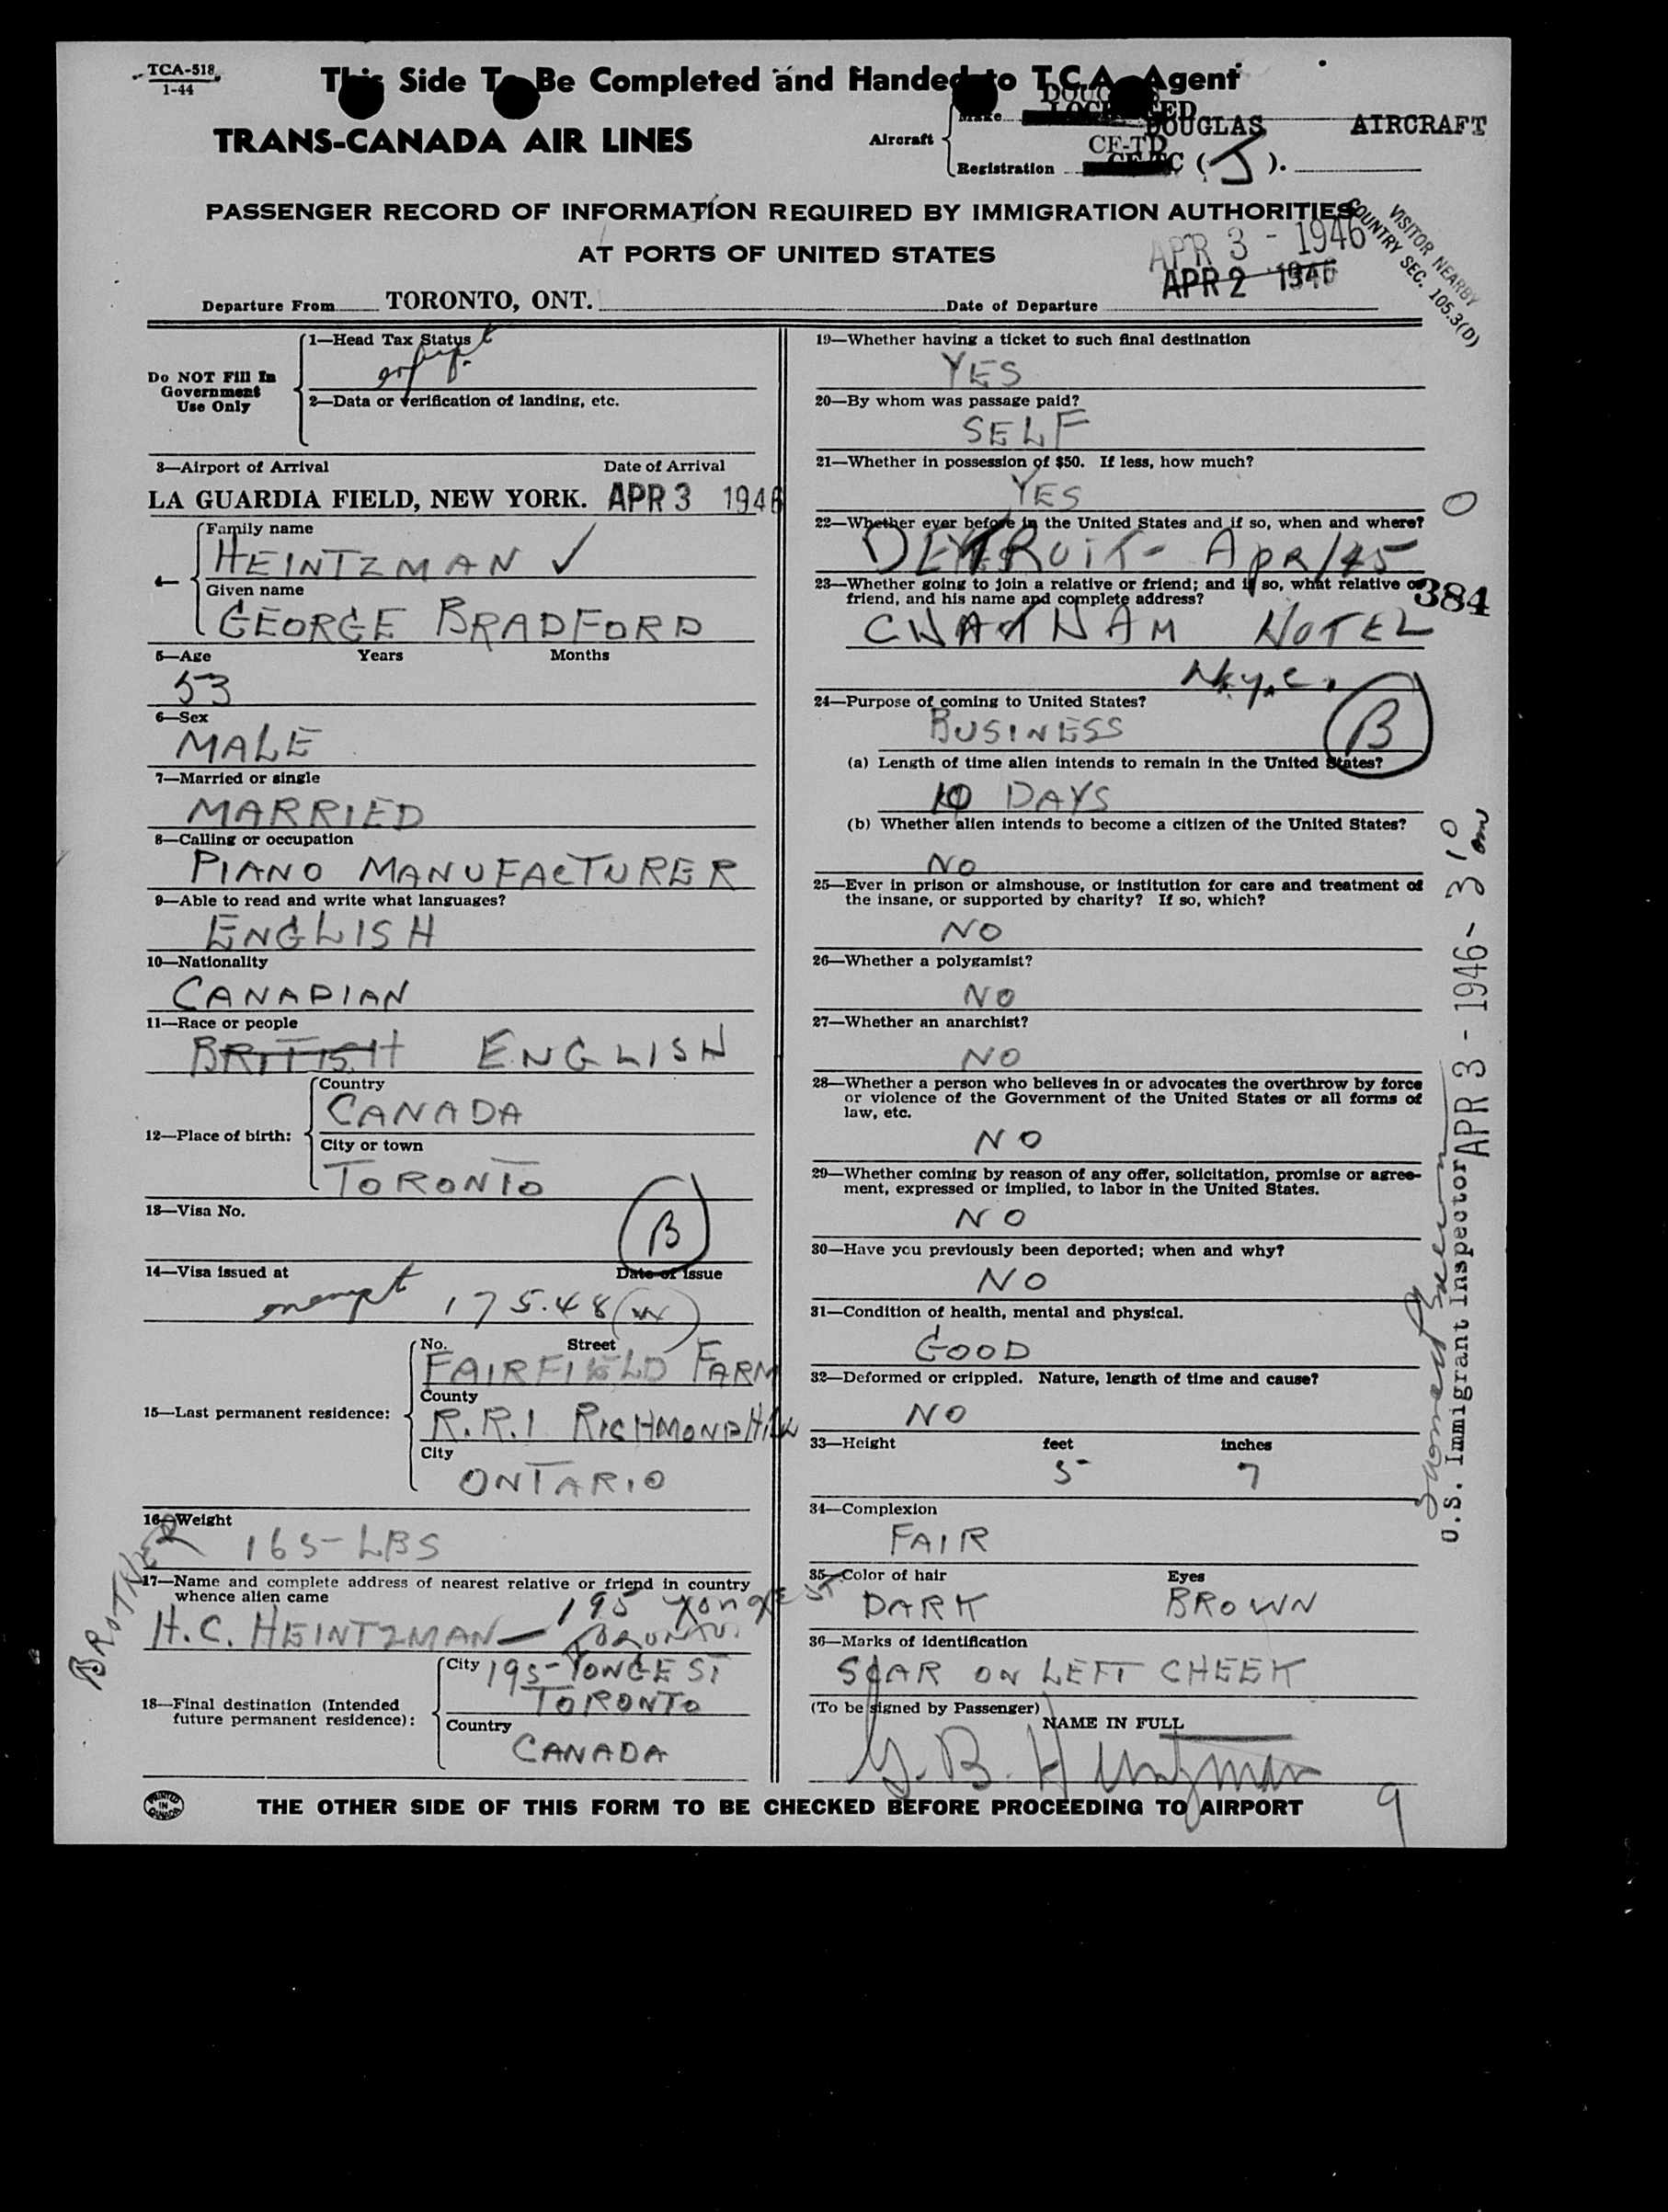 TCA-518
1-44
This Side To Be Completed and Handed to T.C.A. Agent
TRANS-CANADA AIR LINES
Aircraft
Make
DOUGLAS
DOUGLAS AIRCRAFT
CF-TD
Registration (J).
PASSENGER RECORD OF INFORMATION REQUIRED BY IMMIGRATION AUTHORITIES
AT PORTS OF UNITED STATES
VISITOR NEARBY
COUNTRY SEC. 105.3(D)
APR 3 - 1946
APR 2 1946
Departure From TORONTO, ONT. Date of Departure
Do NOT Fill In
Government
Use Only
1—Head Tax Status
2—Data or verification of landing, etc.
3—Airport of Arrival Date of Arrival
LA GUARDIA FIELD, NEW YORK. APR 3 1946
4—
Family name
HEINTZMAN ✓
Given name
GEORGE BRADFORD
5—Age Years Months
53
6—Sex
MALE
7—Married or single
MARRIED
8—Calling or occupation
PIANO MANUFACTURER
9—Able to read and write what languages?
ENGLISH
10—Nationality
CANADIAN
11—Race or people
BRITISH ENGLISH
12—Place of birth:
Country
CANADA
City or town
TORONTO
13—Visa No.
B
14—Visa issued at Date of Issue
exempt 175.48
15—Last permanent residence:
No. Street
FAIRFIELD FARM
County
R.R.1 RICHMOND HILL
City
ONTARIO
16—Weight
165 LBS
BROTHER
17—Name and complete address of nearest relative or friend in country
whence alien came
195 Yonge ST
H.C. HEINTZMAN — TORONTO
18—Final destination (Intended
future permanent residence):
City 195 YONGE ST
TORONTO
Country
CANADA
19—Whether having a ticket to such final destination
YES
20—By whom was passage paid?
SELF
21—Whether in possession of $50. If less, how much?
YES
0
22—Whether ever before in the United States and if so, when and where?
DETROIT - APR/45
23—Whether going to join a relative or friend; and if so, what relative or
friend, and his name and complete address?
384
CHATHAM HOTEL
N.Y.C.
24—Purpose of coming to United States?
BUSINESS
B
(a) Length of time alien intends to remain in the United States?
10 DAYS
(b) Whether alien intends to become a citizen of the United States?
NO
25—Ever in prison or almshouse, or institution for care and treatment of
the insane, or supported by charity? If so, which?
NO
26—Whether a polygamist?
NO
27—Whether an anarchist?
NO
28—Whether a person who believes in or advocates the overthrow by force
or violence of the Government of the United States or all forms of
law, etc.
NO
29—Whether coming by reason of any offer, solicitation, promise or agree-
ment, expressed or implied, to labor in the United States.
NO
30—Have you previously been deported; when and why?
NO
31—Condition of health, mental and physical.
GOOD
32—Deformed or crippled. Nature, length of time and cause?
NO
33—Height feet inches
5 7
34—Complexion
FAIR
35—Color of hair Eyes
DARK BROWN
36—Marks of identification
SCAR ON LEFT CHEEK
(To be signed by Passenger)
NAME IN FULL
G. B. Heintzman
U.S. Immigrant Inspector APR 3 - 1946 - 3 10 am
PRINTED IN CANADA
THE OTHER SIDE OF THIS FORM TO BE CHECKED BEFORE PROCEEDING TO AIRPORT
9